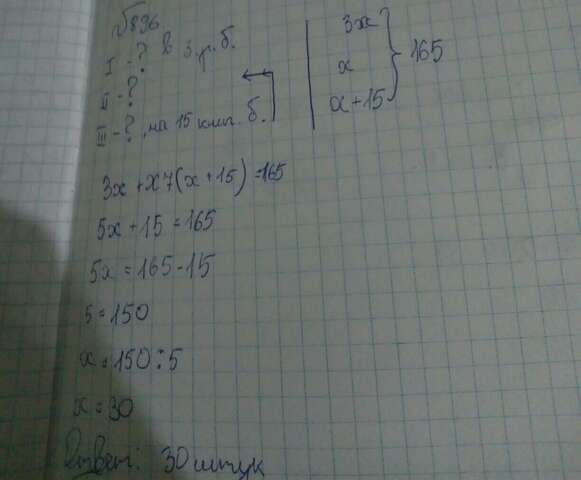 №896.
I - ? в 3 р. б.
II - ?
III - ?, на 15 книг. б.
3x
x
x+15
165
3x+x+(x+15)=165
5x+15=165
5x=165-15
5=150
x=150:5
x=30
Ответ: 30 штук